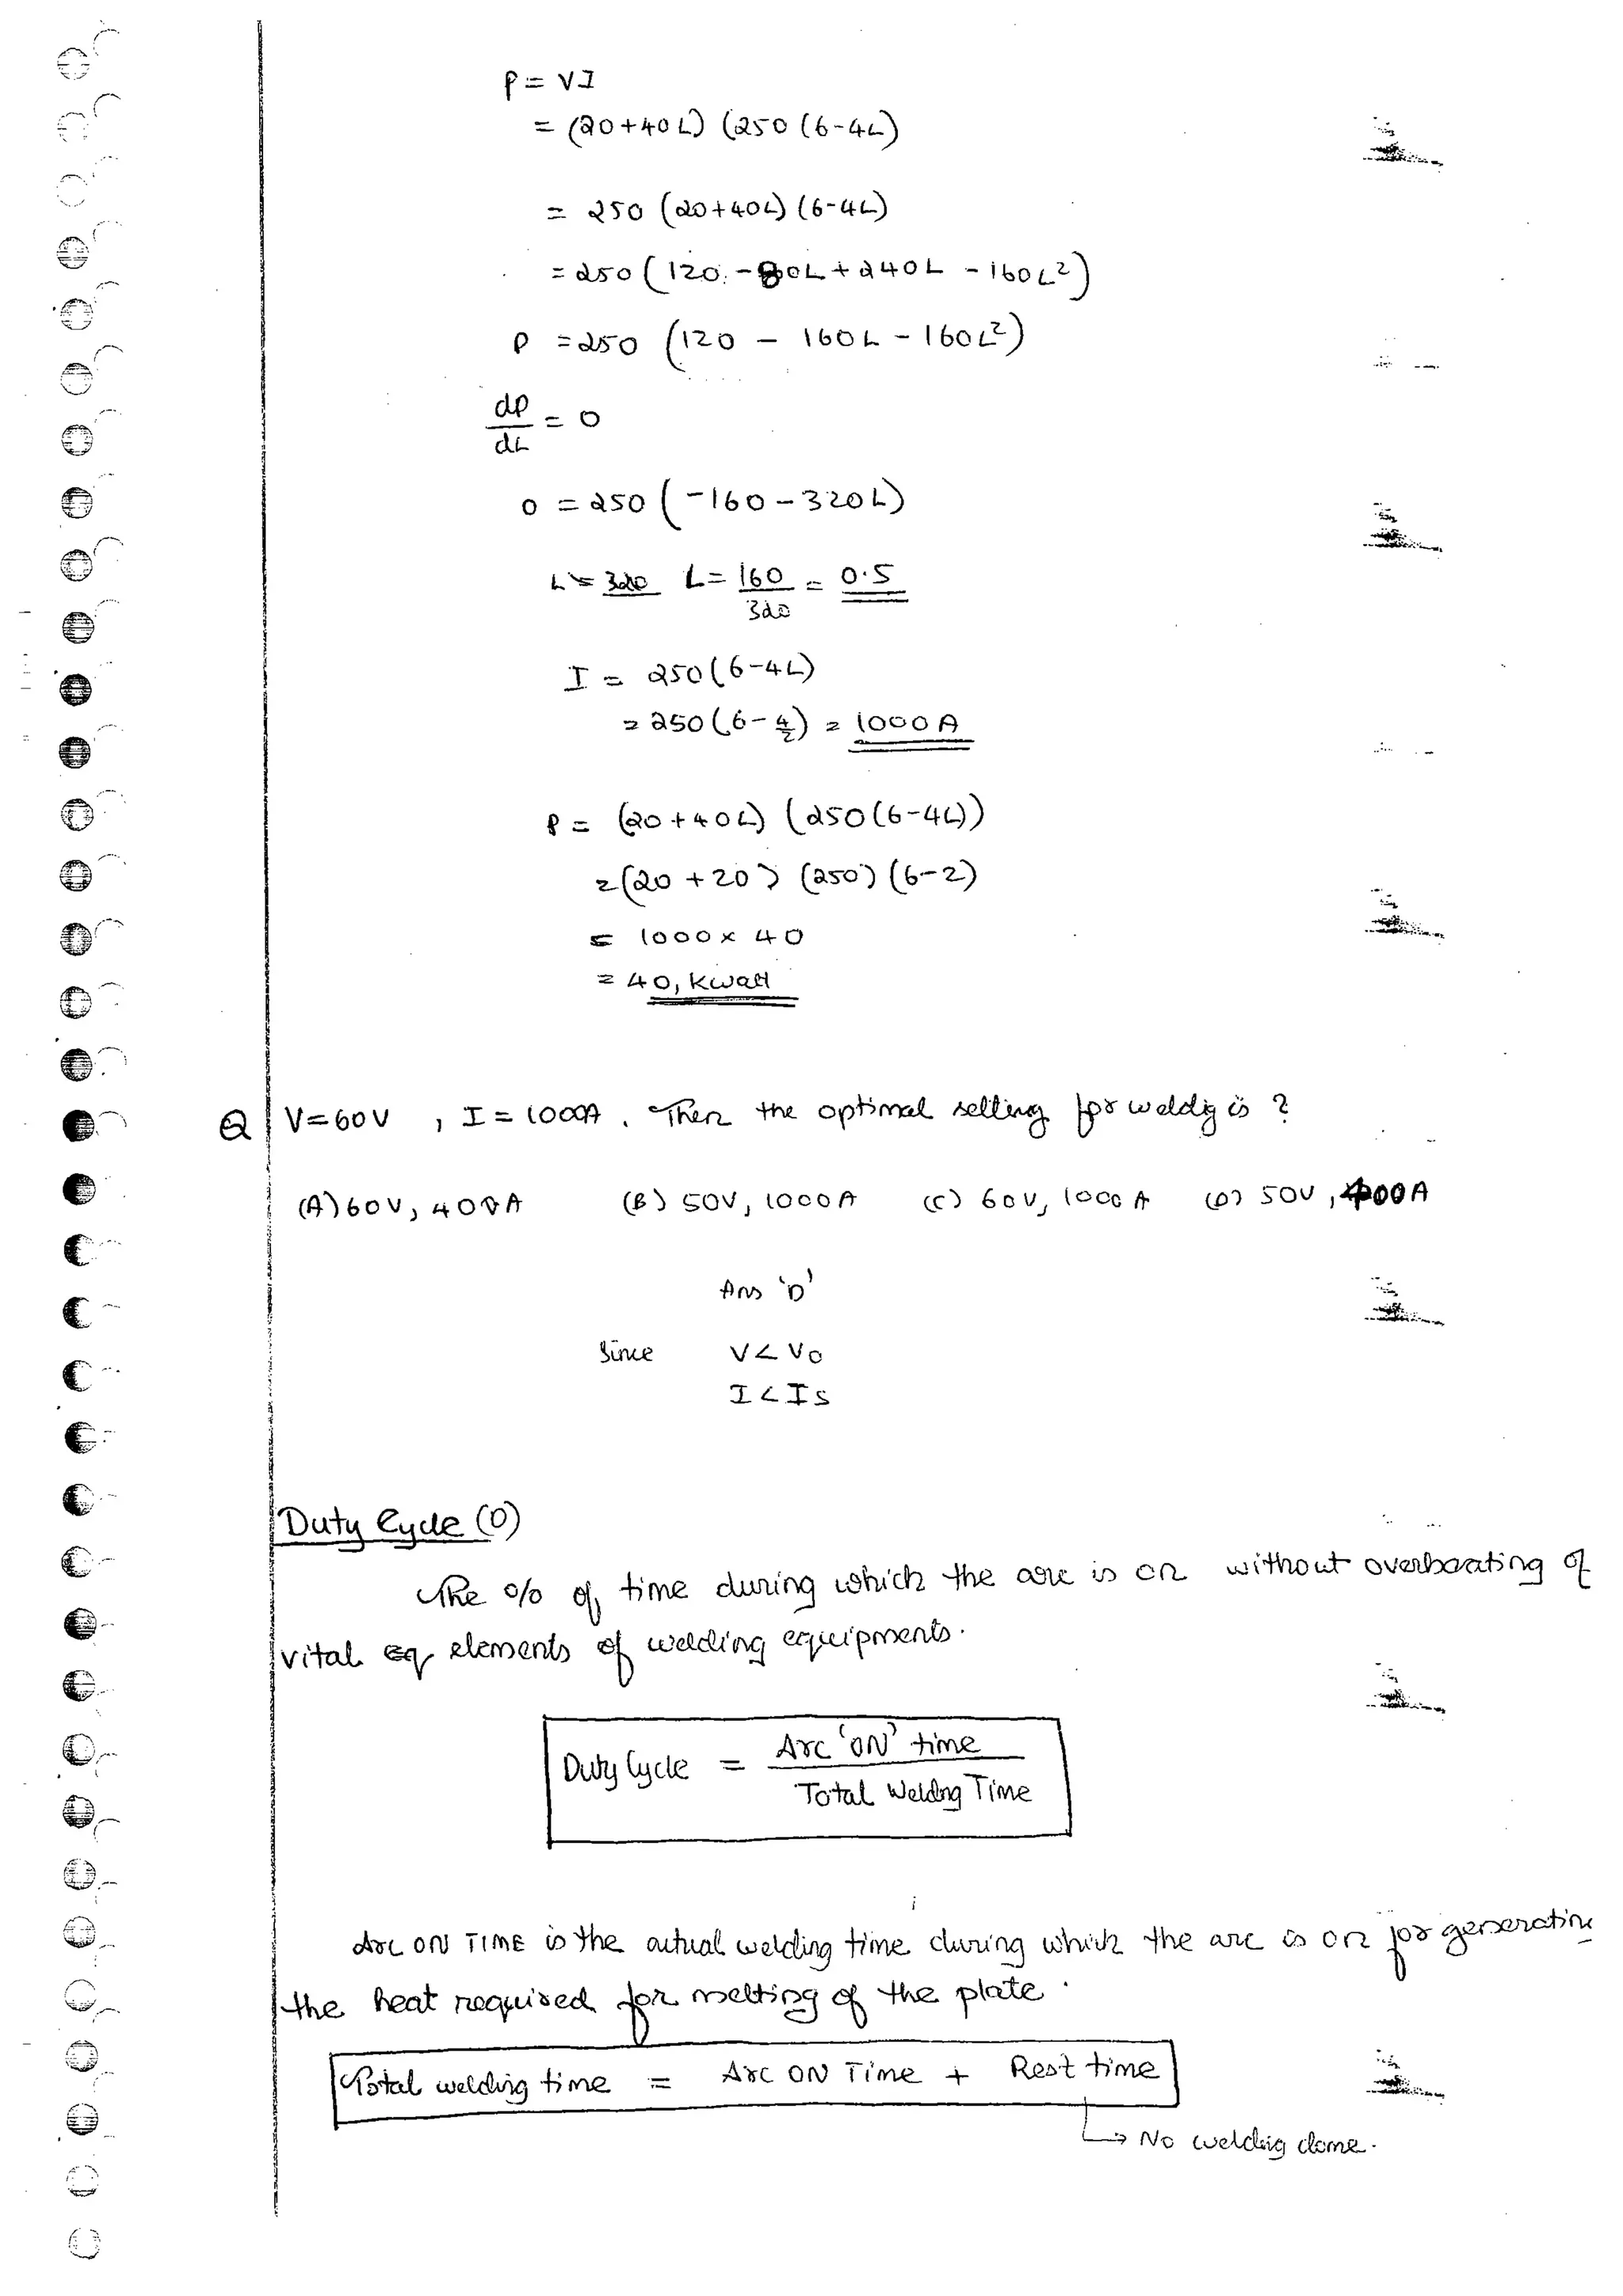 P = VI
= (20+40L) (250 (6-4L)
= 250 (20+40L) (6-4L)
= 250 ( 120 - 80L + 240L - 160L²)
P = 250 (120 - 160L - 160L²)
dP/dL = 0
0 = 250 ( -160 - 320L)
L = 320 L = 160/320 = 0.5
I = 250(6-4L)
= 250(6 - 4/2) = 1000A
P = (20+40L) (250(6-4L))
= (20 + 20) (250) (6-2)
= 1000 x 40
= 40, kwatt
Q V=60V , I = 1000A . Then the optimal setting for weldig is ?
(A) 60V, 400A (B) 50V, 1000A (C) 60V, 1000 A (D) 50V, 400A
Ans 'D'
Since V < Vo
I < Is
Duty Cycle (D)
The % of time during which the arc is on without overheating of
vital eq elements of welding equipments.
Duty Cycle = Arc 'ON' time / Total Welding Time
Arc ON TIME is the actual welding time during which the arc is on for generating
the heat required for melting of the plate.
Total welding time = Arc ON Time + Rest time
↳ No welding done.